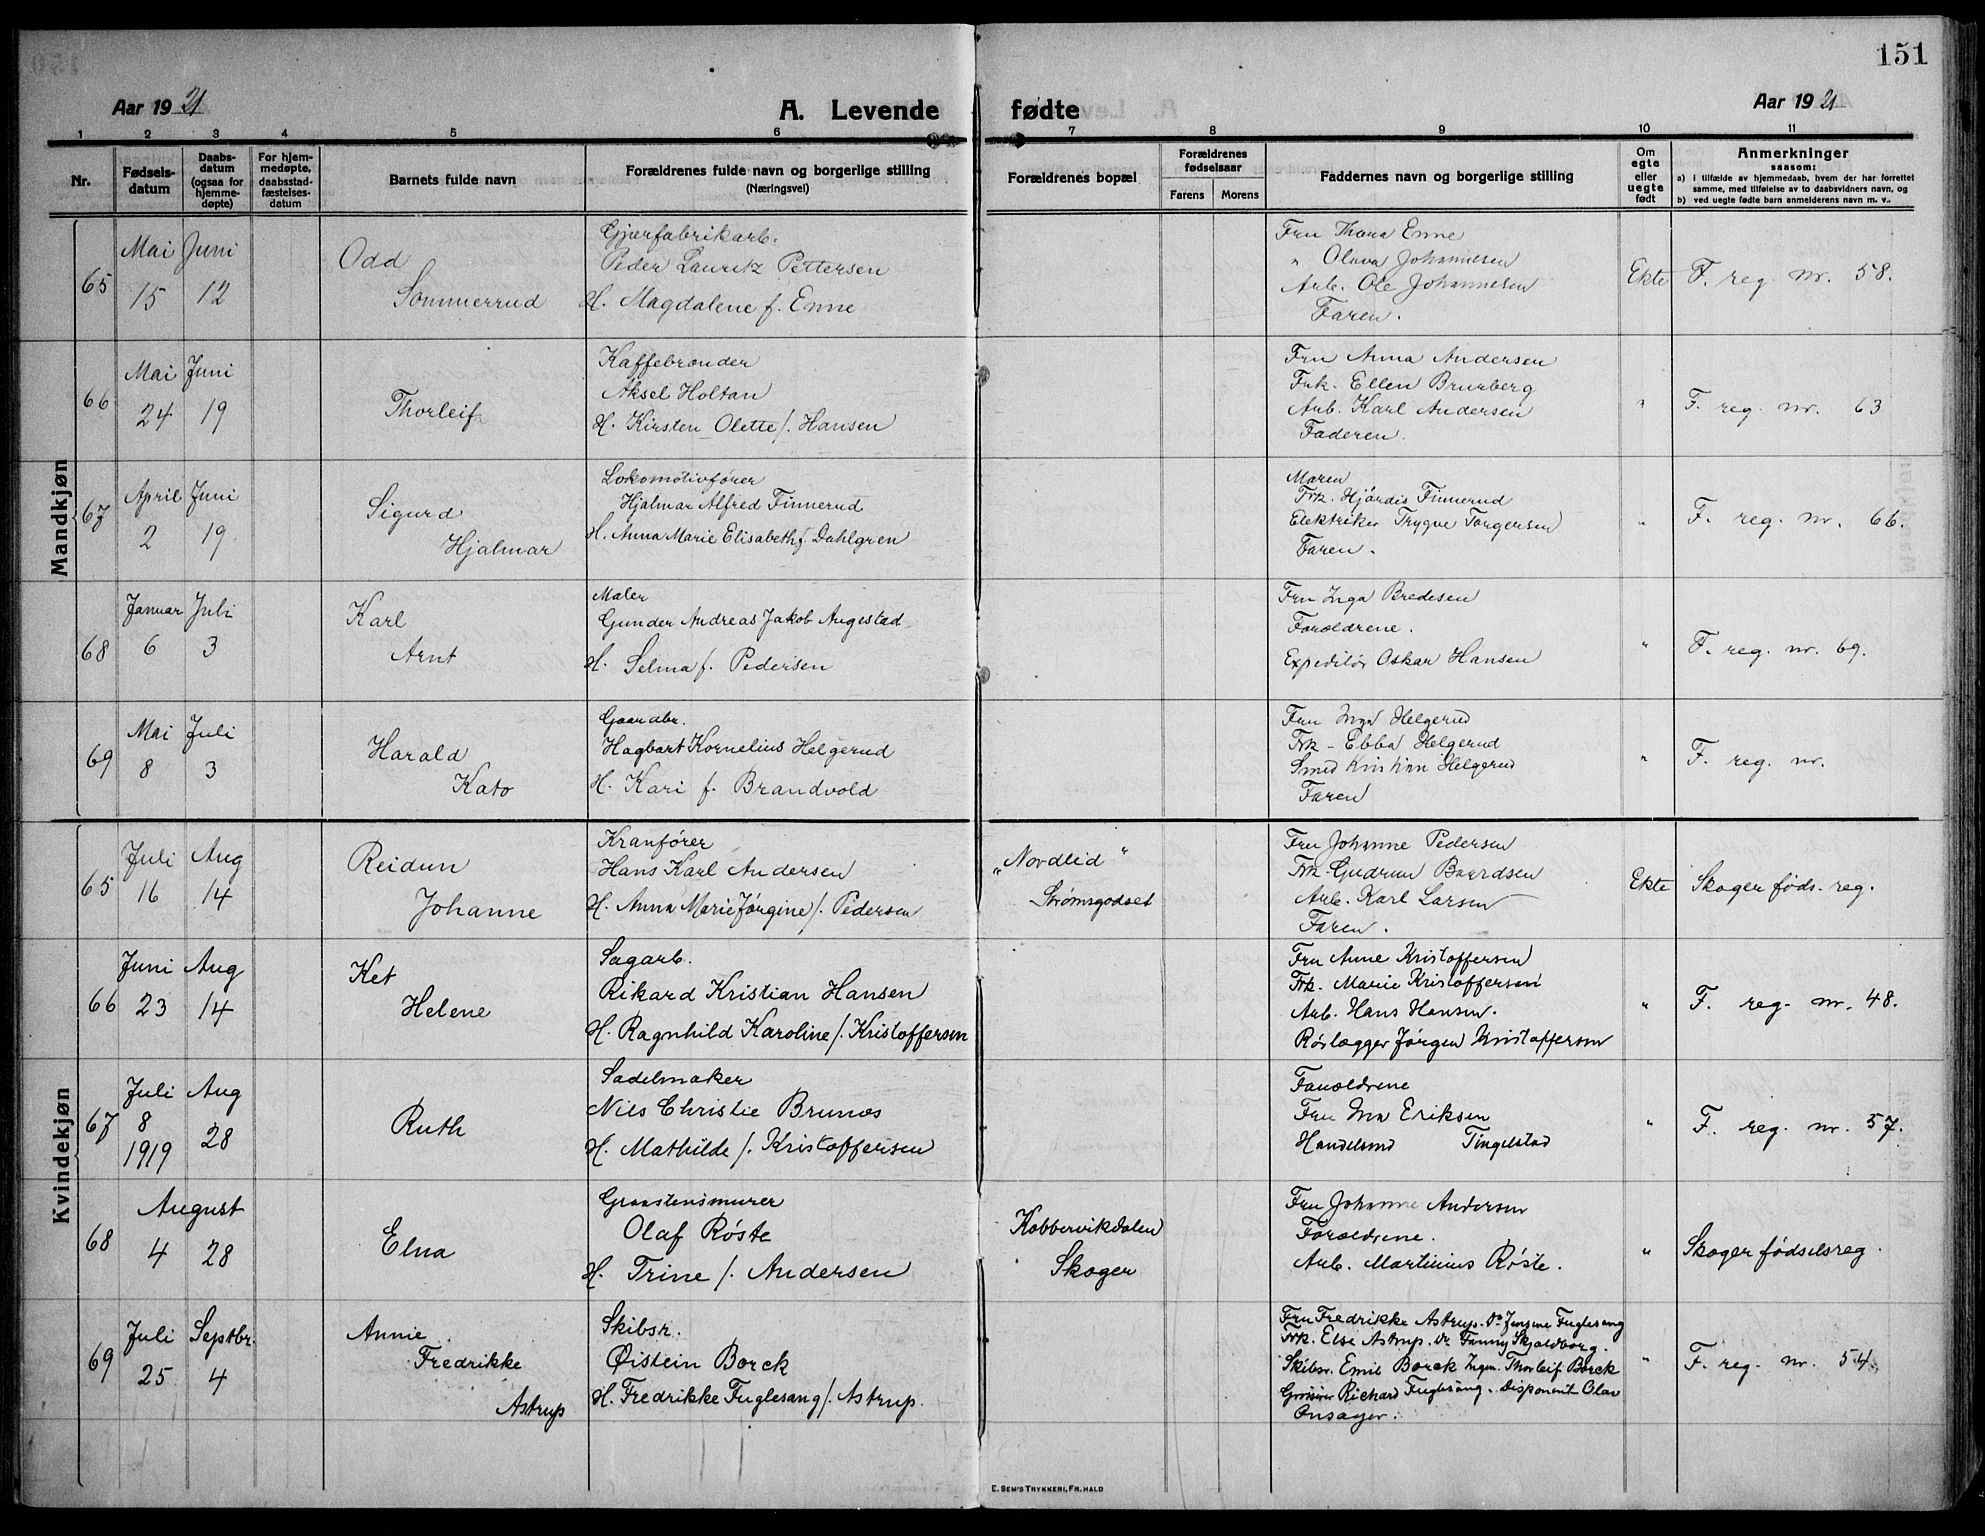 151
Aar 1921
A. Levende fødte
Aar 1921
1 2 3 4 5 6 7 8 9 10 11
Nr.
Fødsels-
datum
Daabs-
datum
(ogsaa for
hjemme-
døpte)
For hjem-
medøpte,
daabsstad-
fæstelses-
datum
Barnets fulde navn
Forældrenes fulde navn og borgerlige stilling
(Næringsvei)
Forældrenes bopæl
Forældrenes
fødselsaar
Farens Morens
Faddernes navn og borgerlige stilling
Om
egte
eller
uegte
født
Anmerkninger
saasom:
a) i tilfælde av hjemmedaab, hvem der har forrettet
samme, med tilføielse av to daabsvidners navn, og
b) ved uegte fødte barn anmelderens navn m. v..
Mandkjøn
65
Mai Juni
15 12
Odd
Sommerrud
Gjærfabrikarb.
Peder Lauritz Pettersen
H. Magdalene f. Enne
Fru Thora Enne
" Olava Johannesen
Arb. Ole Johannesen
Faren.
Ekte
F. reg. nr. 58.
66
Mai Juni
24 19
Thorleif
Kaffebrender
Aksel Holtan
H. Kirsten Olette f. Hansen
Fru Anna Andersen
Frk. Ellen Brunberg
Arb. Karl Andersen
Faderen.
"
F. reg. nr. 63
67
April Juni
2 19
Sigurd
Hjalmar
Lokomotivfører
Hjalmar Alfred Finnerud
H. Anna Marie Elisabeth f. Dahlgren
Moren
Frk. Hjørdis Finnerud
Elektriker Trygve Torgersen
Faren.
"
F. reg. nr. 66.
68
Januar Juli
6 3
Karl
Arnt
Maler
Gunder Andreas Jakob Augestad
H. Selma f. Pedersen
Fru Inga Bredesen
Forældrene.
Expeditør Oskar Hansen
"
F. reg. nr. 69.
69
Mai Juli
8 3
Harald
Kato
Gaardbr.
Hagbart Kornelius Helgerud
H. Kari f. Brandvold
Fru Inga Helgerud
Frk. Ebba Helgerud
Smed Kristian Helgerud
Faren
"
F. reg. nr.
Kvindekjøn
65
Juli Aug
16 14
Reidun
Johanne
Kranfører
Hans Karl Andersen
H. Anna Marie Jørgine f. Pedersen
"Nordlid"
Strømsgodset
Fru Johanne Pedersen
Frk. Gudrun Baardsen
Arb. Karl Larsen
Faren.
Ekte
Skoger føds. reg.
66
Juni Aug
23 14
Ket
Helene
Sagarb.
Rikard Kristian Hansen
H. Ragnhild Karoline f. Kristoffersen
Fru Anne Kristoffersen
Frk. Marie Kristoffersen
Arb. Hans Hansen.
Rørlægger Jørgen Kristoffersen
"
F. reg. nr. 48.
67
Juli Aug
8 28
1919
Ruth
Sadelmaker
Nils Christie Brunæs
H. Mathilde f. Kristoffersen
Forældrene
Fru Ina Eriksen
Handelsmd Tingelstad
"
F. reg. nr. 57.
68
August
4 28
Elna
Graastensmurer
Olaf Røste
H. Trine f. Andersen
Kobbervikdalen
Skoger
Fru Johanne Andersen
Forældrene.
Arb. Martinius Røste.
"
Skoger fødselsreg.
69
Juli Septbr.
25 4
Annie
Fredrikke
Astrup
Skibsr.
Øistein Borck
H. Fredrikke Fuglesang f. Astrup.
Fru Fredrikke Astrup. Do Jensine Fuglesang
Frk. Else Astrup. Do Fanny Skjoldborg.
Skibsr. Emil Borck Ingen. Thorleif Borck
Grosserer Richard Fuglesang. Disponent Olav
Onsager.
"
F. reg. nr. 54.
E. SEM'S TRYKKERI, FR. HALD